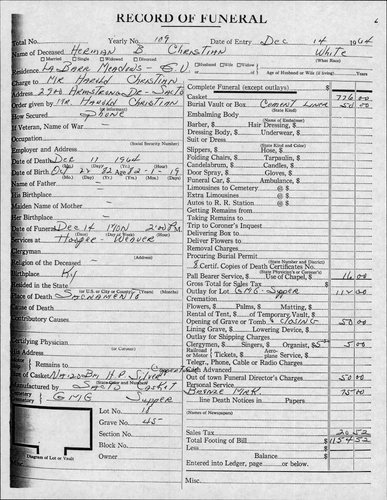 RECORD OF FUNERAL
Total No. Yearly No. 109 Date of Entry Dec 14 1964
Name of Deceased Herman B Christian White
Married Single Widowed Divorced Husband Wife Widow of (What Race)
Residence La Barr Meadows - G.V. Age of Husband or Wife (if living) Years
Charge to Mr Harold Christian
Address 2900 Armstrong Dr - Sacto
Order given by Mr. Harold Christian
How Secured Phone
If Veteran, Name of War
Occupation
(Social Security Number)
Employer and Address
Date of Death Dec 11 1964
Date of Birth Oct 22 82 Age 82-1-19
Name of Father
His Birthplace
Maiden Name of Mother
Her Birthplace
Date of Funeral Dec 14 Mon 2:00 P.M.
Services at Hooper-Weaver
(Address)
Religion of the Deceased
Birthplace Ky
Resided in the State
(or U.S. or City or County) (Years) (Months)
Place of Death Sacramento
Cause of Death
Contributory Causes
Certifying Physician
(or Coroner)
His Address
Remains to
Size of Casket No. 120 H.P. Silver
(State and Number)
Manufactured by Sacto Casket
Cemetery GMG Supper
Lot No. 18
Grave No. 45
Section No.
Block No.
Owner
Diagram of Lot or Vault
Complete Funeral (except outlays) $
Casket 776 00
Burial Vault or Box Cement Liner 50 00
(State Kind)
Embalming Body
(Name of Embalmer)
Barber, $ Hair Dressing, $
Dressing Body, $ Underwear, $
Suit or Dress
(State Kind and Color)
Slippers, $ Hose, $
Folding Chairs, $ Tarpaulin, $
Candelabrum, $ Candles, $
Door Spray, $ Gloves, $
Funeral Car, $ Ambulance, $
Limousines to Cemetery @ $
Extra Limousines @ $
Autos to R. R. Station @ $
Getting Remains from
Taking Remains to
Trip to Coroner's Inquest
Delivering Box to
Deliver Flowers to
Removal Charges
Procuring Burial Permit
(State Number and District)
8 Certif. Copies of Death Certificates No.
(State Physician's or Coroner's)
Pall Bearer Service, $ Use of Chapel, $ 16 00
Gross Total for Sales Tax $
Outlay for Lot GMG-Supper 112 00
Cremation
Flowers, $ Palms, $ Matting, $
Rental of Tent, $ of Temporary Vault, $
Opening of Grave or Tomb & Closing 50 00
Lining Grave, $ Lowering Device, $
Outlay for Shipping Charges
Clergymen, $ Singers, $ Organist, $ 5 5 00
Railroad or Motor Tickets, $ Aeroplane Service, $
Telegr., Phone, Cable or Radio Charges
Cash Advanced
Out of town Funeral Director's Charges 50 00
Personal Service
Bronze Mrk. 75 00
line Death Notices in Papers
(Names of Newspapers)
Sales Tax 20 52
Total Footing of Bill $ 1154 52
Less $
Balance $
Entered into Ledger, page or below.
Misc.